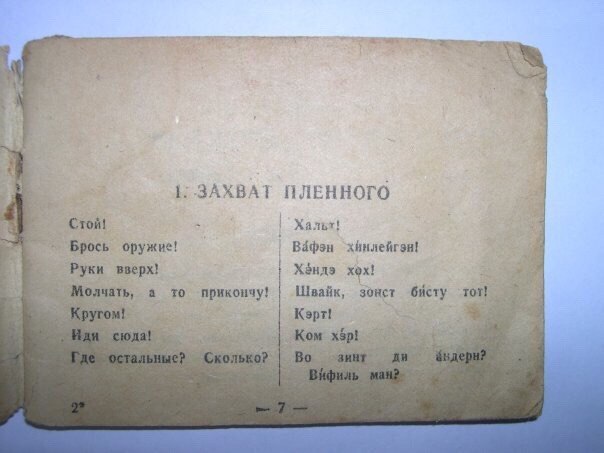 1. ЗАХВАТ ПЛЕННОГО
Стой!
Брось оружие!
Руки вверх!
Молчать, а то прикончу!
Кругом!
Иди сюда!
Где остальные? Сколько?
Хальт!
Ва́фэн хи́нлейгэн!
Хэ́ндэ хох!
Швайк, зонст би́сту тот!
Кэрт!
Ком хэ́р!
Во зинт ди а́ндерн?
Ви́филь ман?
2*
— 7 —